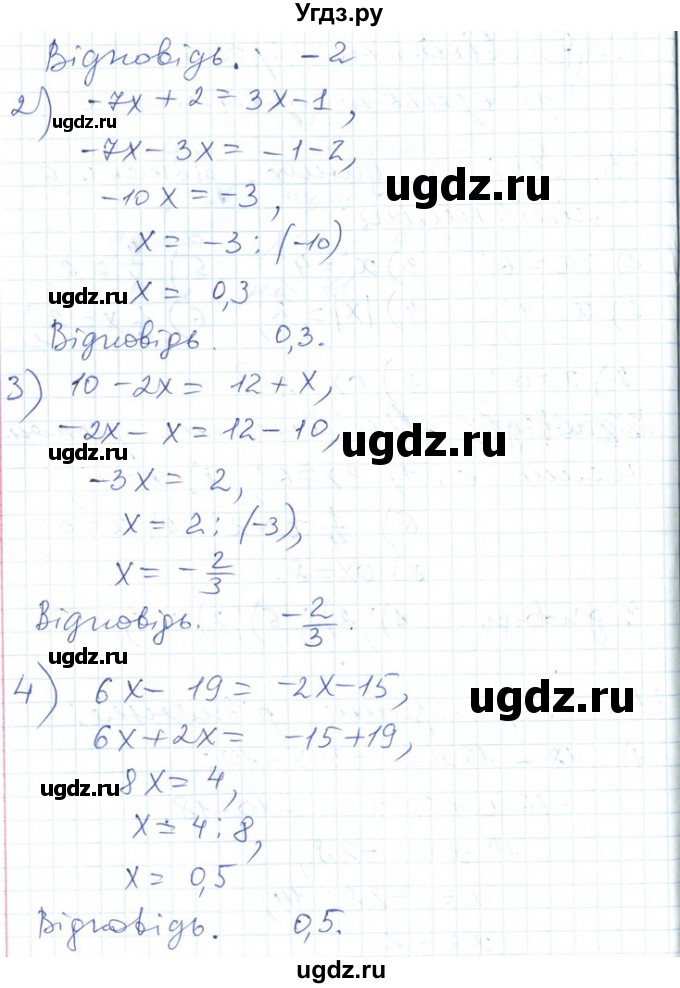 Угдз.ру
Відповідь. -2
2) -7x + 2 = 3x - 1,
ugdz.ru
-7x - 3x = -1 - 2,
ugdz.ru
-10x = -3,
x = -3 : (-10)
ugdz.ru
x = 0,3
Відповідь. 0,3.
3) 10 - 2x = 12 + x,
-2x - x = 12 - 10,
ugdz.ru
ugdz.ru
-3x = 2,
x = 2 : (-3),
x = -2/3
Відповідь. -2/3.
ugdz.ru
4) 6x - 19 = -2x - 15,
ugdz.ru
6x + 2x = -15 + 19,
8x = 4,
ugdz.ru
x = 4 : 8,
x = 0,5
Відповідь. 0,5.
ugdz.ru